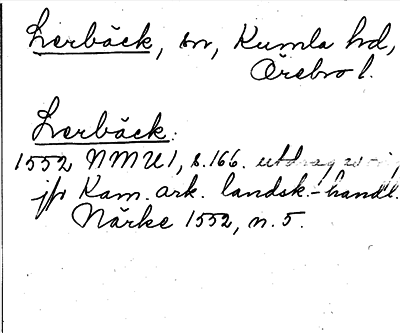 Lerbäck, sn, Kumla hd,
Örebro l.
Lerbäck:
1552 NMU1, s.166. utdrag
jfr Kam. ark. landsk.-handl.
Närke 1552, n. 5.